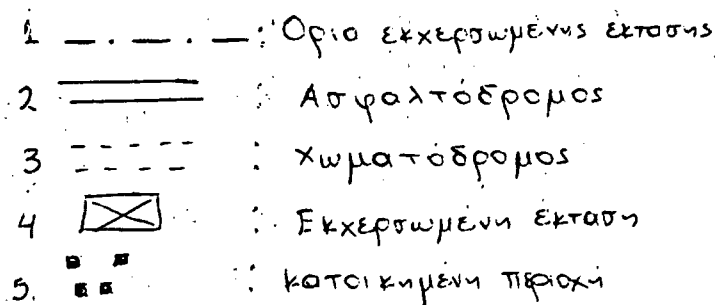 1 : Όριο εκχερσωμένης έκτασης
2 : Ασφαλτόδρομος
3 : Χωματόδρομος
4 : Εκχερσωμένη έκταση
5. : κατοικημένη περιοχή